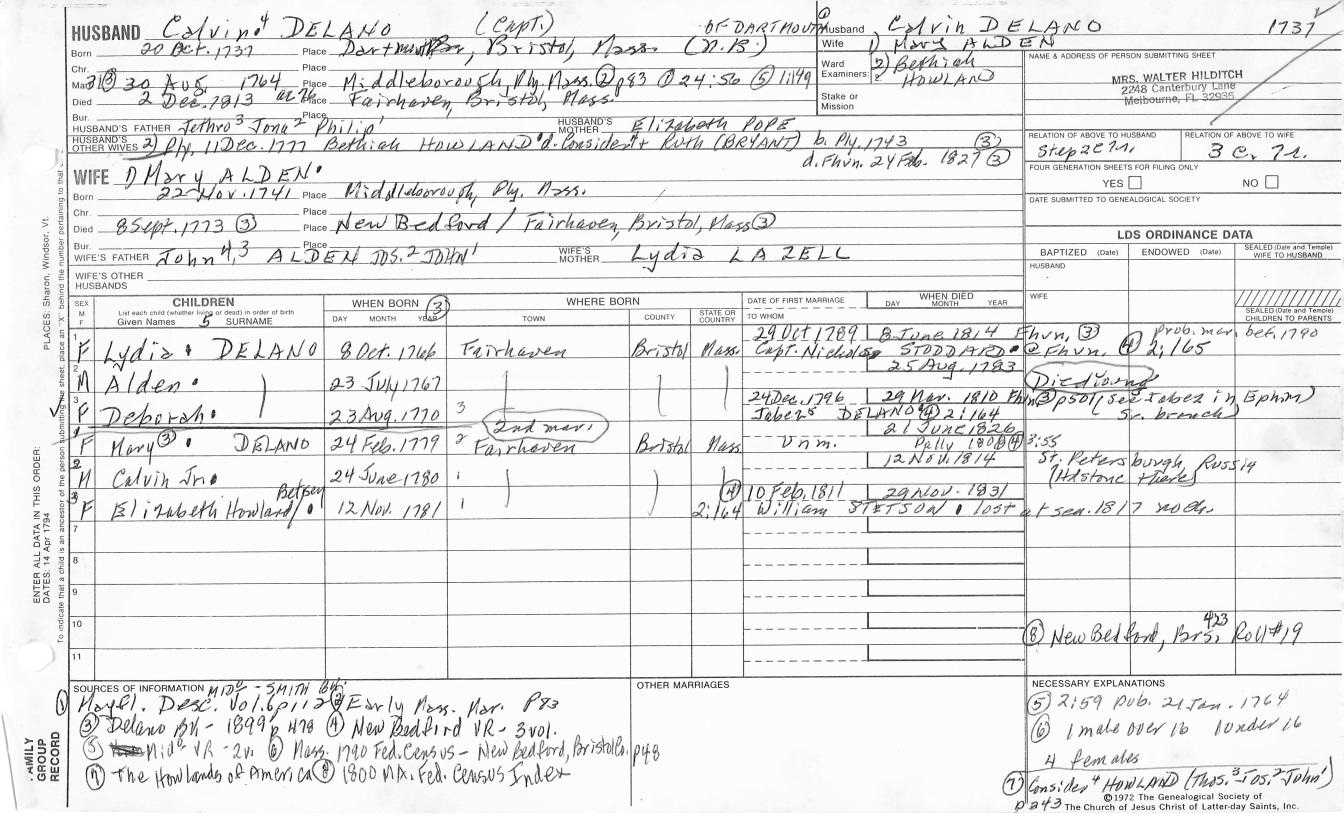 HUSBAND Calvin⁴ DELANO (Capt.) OF DARTMOUTH
Born 20 Oct. 1737 Place Bristol, Mass. (N.B.)
Chr. Place
Mar. ③ 30 Aug 1764 Place Middleborough, Ply. Mass. ② p83 ① 24:56 ⑤ 1:149
Died 2 Dec. 1813 ae 76 Place Fairhaven, Bristol, Mass.
Bur. Place
HUSBAND'S FATHER Jethro³ Jona² Philip¹ HUSBAND'S MOTHER Elizabeth POPE
HUSBAND'S OTHER WIVES 2) Ply. 11 Dec. 1777 Bethiah HOWLAND d. Consider + Ruth (BRYANT) b. Ply. 1743 ③
d. Fhvn. 24 Feb. 1827 ③
Husband Calvin DELANO 1737
Wife 1) Mary ALDEN
Ward Examiners 2) Bethiah HOWLAND
Stake or Mission
NAME & ADDRESS OF PERSON SUBMITTING SHEET
MRS. WALTER HILDITCH
2248 Canterbury Lane
Melbourne, FL 32935
RELATION OF ABOVE TO HUSBAND RELATION OF ABOVE TO WIFE
Step 2c 7r. 3 c. 7r.
FOUR GENERATION SHEETS FOR FILING ONLY
YES NO
DATE SUBMITTED TO GENEALOGICAL SOCIETY
WIFE 1) Mary ALDEN
Born 22 Nov. 1741 Place Middleborough, Ply. Mass.
Chr. Place
Died 8 Sept. 1773 ③ Place New Bedford / Fairhaven, Bristol, Mass ③
Bur. Place
WIFE'S FATHER John⁴,³ ALDEN Jos.² John¹ WIFE'S MOTHER Lydia LAZELL
WIFE'S OTHER HUSBANDS
LDS ORDINANCE DATA
BAPTIZED (Date) ENDOWED (Date) SEALED (Date and Temple) WIFE TO HUSBAND
HUSBAND
WIFE
SEALED (Date and Temple) CHILDREN TO PARENTS
SEX M F CHILDREN WHEN BORN ③ WHERE BORN DATE OF FIRST MARRIAGE WHEN DIED
List each child (whether living or dead) in order of birth
Given Names 5 SURNAME DAY MONTH YEAR TOWN COUNTY STATE OR COUNTRY TO WHOM DAY MONTH YEAR
1 29 Oct 1789 8 June 1814 Fhvn. ③ prob. mar. bef. 1790
F Lydia DELANO 8 Oct. 1766 Fairhaven Bristol Mass. Capt. Nicholas STODDARD @ Fhvn. ④ 2:165
2 25 Aug. 1783
M Alden 23 July 1767 Died Young
3 24 Dec. 1796 29 Nov. 1810 Fhvn ③ p501 (see Jabez in Ephm
F Deborah 23 Aug. 1770 3 Jabez⁵ DELANO ④ 2:164 Sr. branch)
2nd mar.
1 21 June 1826
F Mary ③ DELANO 24 Feb. 1779 2 Fairhaven Bristol Mass Unm. ④ 3:55
2 12 Nov. 1814
M Calvin Jr. 24 June 1780 1 St. Petersburgh, Russia
(Hdstone there)
3 Betsey ④ 10 Feb. 1811 29 Nov. 1831
F Elizabeth Howland / 12 Nov. 1781 1 2:164 William STETSON lost at sea. 1817 no ch.
7
8
9
10
11
⑧ New Bedford, Brs. 423 Roll #19
PLACES: Sharon, Windsor, Vt.
ENTER ALL DATA IN THIS ORDER:
DATES: 14 Apr 1794
FAMILY GROUP RECORD
SOURCES OF INFORMATION
① Mayfl. Desc. Vol. 6 p112 ② Early Mass. Mar. P83
③ Delano BK - 1899 p 478 ④ New Bedford VR - 3 vol.
⑤ Midº VR - 2v. ⑥ Mass. 1790 Fed. Census - New Bedford, Bristol Co. p48
⑦ The Howlands of America ⑧ 1800 MA. Fed. Census Index
OTHER MARRIAGES
NECESSARY EXPLANATIONS
⑤ 2:59 pub. 21 Jan. 1764
⑥ 1 male over 16 1 under 16
4 females
⑦ Consider⁴ HOWLAND (Thos.³ Jos.² John¹)
p a43
©1972 The Genealogical Society of
The Church of Jesus Christ of Latter-day Saints, Inc.